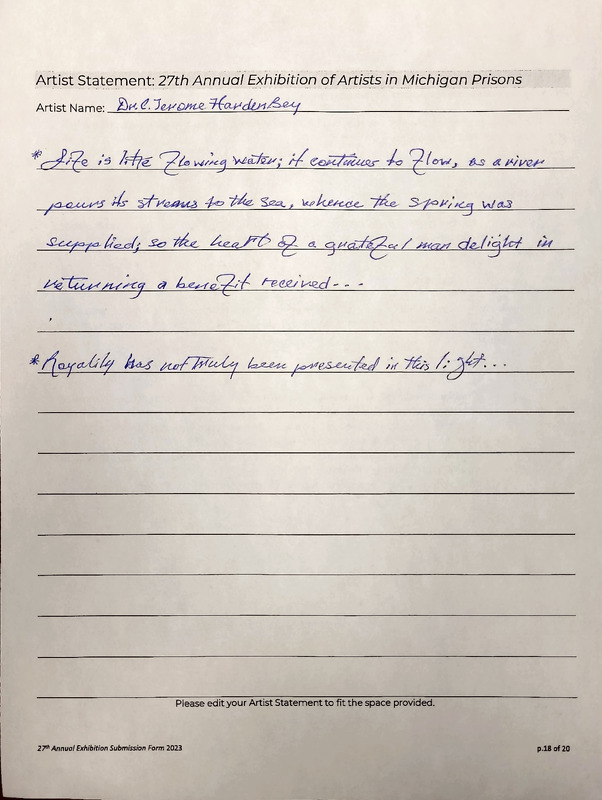 Artist Statement: 27th Annual Exhibition of Artists in Michigan Prisons
Artist Name: Dr. C. Jerome HardenBey
* Life is like flowing water; it continues to flow, as a river
pours its streams to the sea, whence the spring was
supplied; so the heart of a grateful man delight in
returning a benefit received...
* Royality has not truly been presented in this light...
Please edit your Artist Statement to fit the space provided.
27th Annual Exhibition Submission Form 2023
p.18 of 20